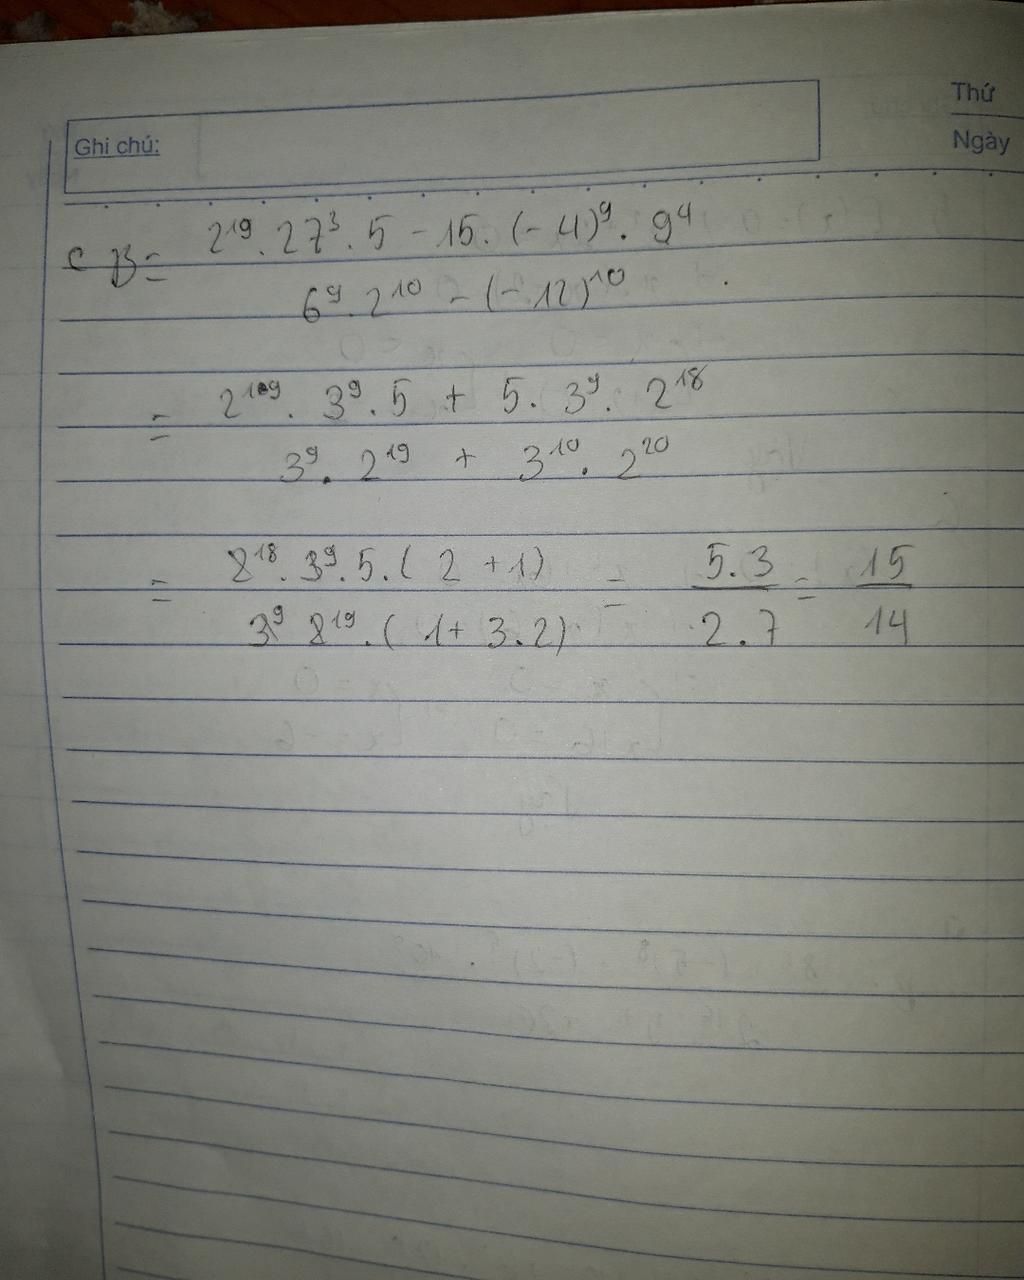 Thứ
Ghi chú:
Ngày
c B = 2¹⁹ . 27³ . 5 - 15 . (-4)⁹ . 9⁴
6⁹ . 2¹⁰ - (-12)¹⁰
= 2¹⁹ . 3⁹ . 5 + 5 . 3⁹ . 2¹⁸
3⁹ . 2¹⁹ + 3¹⁰ . 2²⁰
= 2¹⁸ . 3⁹ . 5 . ( 2 + 1) = 5 . 3 = 15
3⁹ 2¹⁹ . ( 1 + 3 . 2) 2 . 7 14